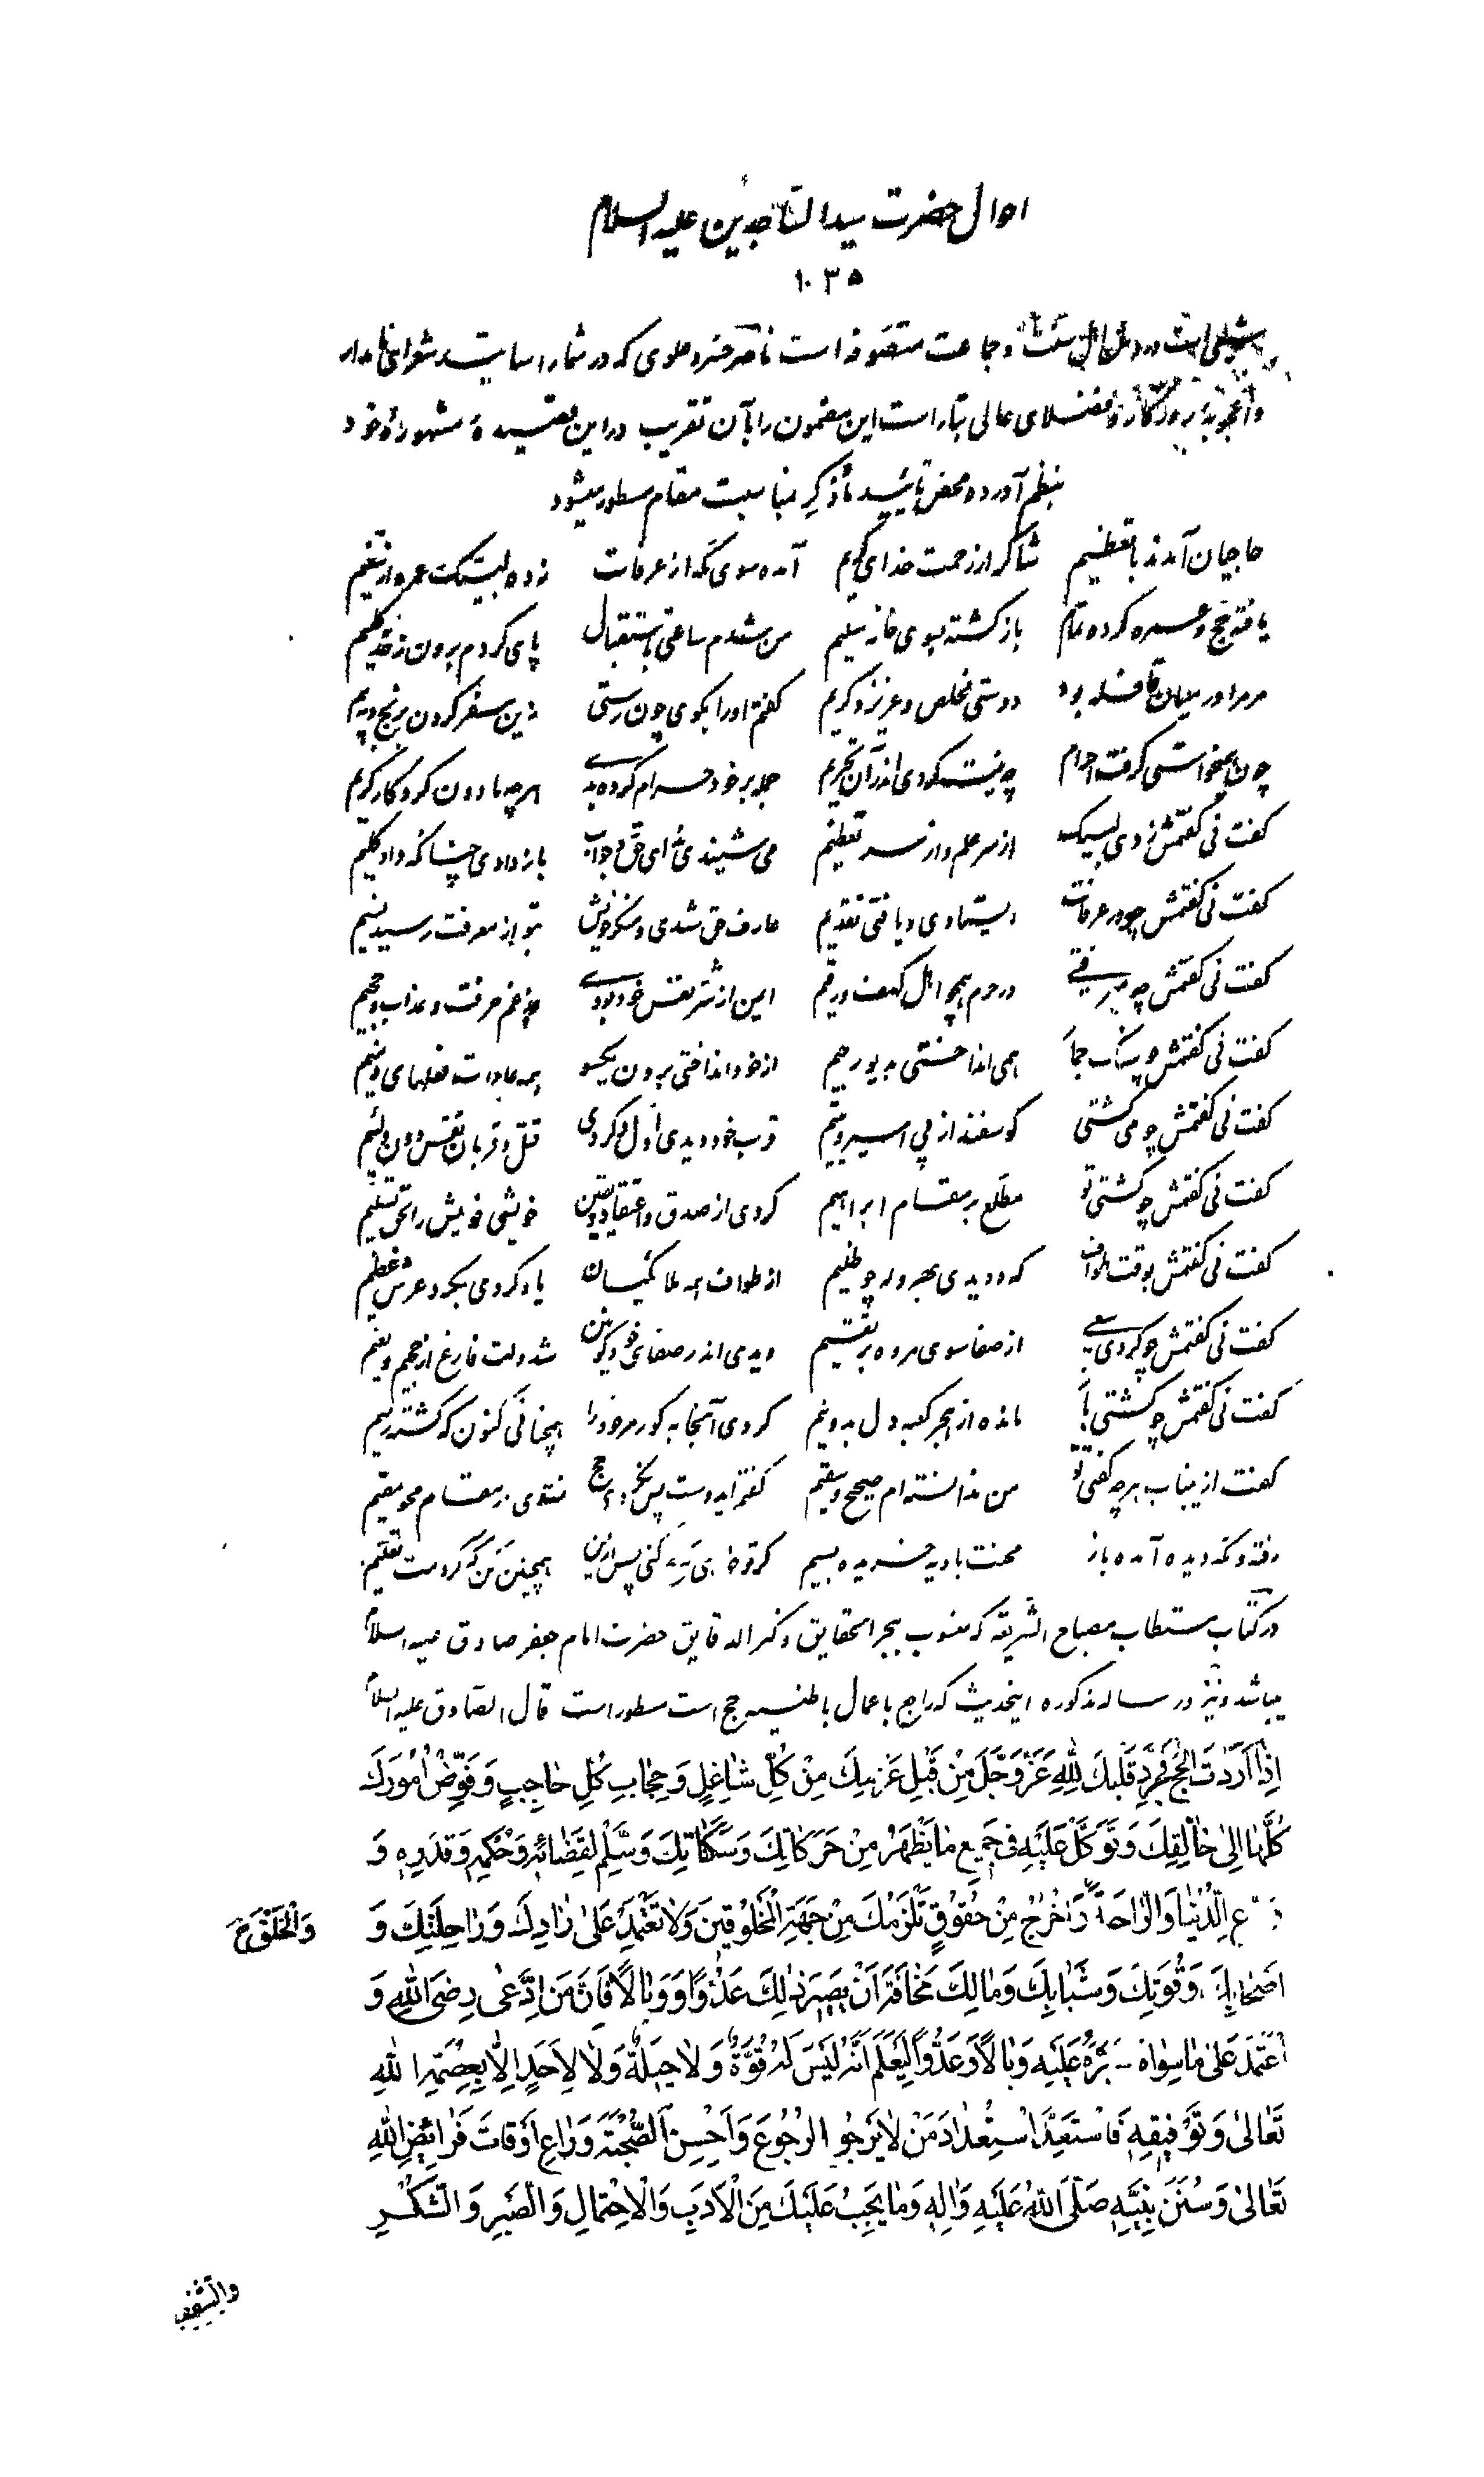 احوال حضرت سیدالساجدین علیه السلام
۱۰۳۵
شبلی است در دل اهل سنت و جماعت متصوفه است ناصر خسرو علوی که در شمار اساتید شعرای نامدار
و اعجوبهٔ روزگار و فضلای عالی تبار است این مضمون را بآن تقریب در این قصیدهٔ مشهورهٔ خود
بنظم آورده محض تأیید ما ذکر بمناسبت مقام مسطور میشود
حاجیان آمدند با تعظیم شاکر از رحمت خدای کریم آمده سوی مکه از عرفات زده لبیک عمره از تنعیم
یافته حج و عمره کرده تمام بازگشته بسوی خانه سلیم من شدم ساعتی باستقبال پای کردم برون ز حد گلیم
مرمرا در میان قافله بود دوستی مخلص و عزیز و کریم گفتم او را بگوی چون رستی زین سفر کردن برنج و بیم
چون همیخواستی گرفت احرام چه نیت کردی اندر آن تحریم جمله بر خود حرام کرده بدی هر چه مادون کردگار کریم
گفت نی گفتمش زدی لبیک از سر علم و از سر تعظیم می شنیدی ندای حق و جواب باز دادی چنانکه داد کلیم
گفت نی گفتمش چو در عرفات ایستادی و یافتی تقدیم عارف حق شدی و منکر خویش بتو از معرفت رسید نسیم
گفت نی گفتمش چو میرفتی در حرم همچو اهل کهف و رقیم ایمن از شر نفس خود بودی در غم حرقت و عذاب جحیم
گفت نی گفتمش چو سنگ جمار همی انداختی بدیو رجیم از خود انداختی برون یکسو همه عادات و فعلهای ذمیم
گفت نی گفتمش چو می کشتی گوسفند از پی اسیر و یتیم قرب خود دیدی اول و کردی قتل و قربان نفس دون لئیم
گفت نی گفتمش چو گشتی تو مطلع بر مقام ابراهیم کردی از صدق و اعتقاد و یقین خویشی خویش را بحق تسلیم
گفت نی گفتمش بوقت طواف که دویدی بهروله چو ظلیم از طواف همه ملائکیان یاد کردی بگرد عرش عظیم
گفت نی گفتمش چو کردی سعی از صفا سوی مروه بر تقسیم دیدی اندر صفای خود کونین شد دلت فارغ از جحیم و نعیم
گفت نی گفتمش چو گشتی باز مانده از هجر کعبه دل بدو نیم کردی آنجا بگور مر خود را همچنانی کنون که گشته رمیم
گفت از این باب هر چه گفتی تو من ندانسته ام صحیح و سقیم گفتم ایدوست پس نکردی حج نشدی در مقام محو مقیم
رفته و مکه دیده آمده باز محنت بادیه خریده بسیم گر تو خواهی که حج کنی پس ازین همچنین کن که کردمت تعلیم
در کتاب مستطاب مصباح الشریعه که منسوب ببحر الحقایق و کنز الدقایق حضرت امام جعفر صادق علیه السلام
میباشد و نیز در رساله مذکوره اینحدیث که راجع باعمال باطنیه حج است مسطور است قال الصادق علیه السلام
اِذٰا اَرَدْتَ الْحَجَّ فَجَرِّدْ قَلْبَكَ لِلّٰهِ عَزَّ وَ جَلَّ مِنْ قَبْلِ عَزْمِكَ مِنْ كُلِّ شٰاغِلٍ وَ حِجٰابِ كُلِّ حٰاجِبٍ وَ فَوِّضْ اُمُورَكَ
كُلَّهٰا اِلىٰ خٰالِقِكَ وَ تَوَكَّلْ عَلَيْهِ فى جَمِيعِ مٰا يَظْهَرُ مِنْ حَرَكٰاتِكَ وَ سَكَنٰاتِكَ وَ سَلِّمْ لِقَضٰائِهِ وَ حُكْمِهِ وَ قَدَرِهِ وَ
دَعِ الدُّنْيٰا وَ الرّٰاحَةَ وَ الْخَلْقَ وَ اخْرُجْ مِنْ حُقُوقٍ تَلْزَمُكَ مِنْ جِهَةِ الْمَخْلُوقِينَ وَ لاٰ تَعْتَمِدْ عَلىٰ زٰادِكَ وَ رٰاحِلَتِكَ وَ
اَصْحٰابِكَ وَ قُوَّتِكَ وَ شَبٰابِكَ وَ مٰالِكَ مَخٰافَةَ اَنْ يَصِيرَ ذٰلِكَ عَدُوًّا وَ وَبٰالاً فَاِنَّ مَنِ ادَّعىٰ رِضَى اللّٰهِ وَ
اعْتَمَدَ عَلىٰ مٰا سِوٰاهُ صَيَّرَهُ عَلَيْهِ وَبٰالاً وَ عَدُوًّا لِيَعْلَمَ اَنَّهُ لَيْسَ لَهُ قُوَّةٌ وَ لاٰ حِيلَةٌ وَ لاٰ لِاَحَدٍ اِلاّٰ بِعِصْمَةِ اللّٰهِ
تَعٰالىٰ وَ تَوْفِيقِهِ فَاسْتَعِدَّ اسْتِعْدٰادَ مَنْ لاٰ يَرْجُو الرُّجُوعَ وَ اَحْسِنِ الصُّحْبَةَ وَ رٰاعِ اَوْقٰاتَ فَرٰائِضِ اللّٰهِ
تَعٰالىٰ وَ سُنَنَ نَبِيِّهِ صَلَّى اللّٰهُ عَلَيْهِ وَ اٰلِهِ وَ مٰا يَجِبُ عَلَيْكَ مِنَ الْاَدَبِ وَ الْاِحْتِمٰالِ وَ الصَّبْرِ وَ الشُّكْرِ